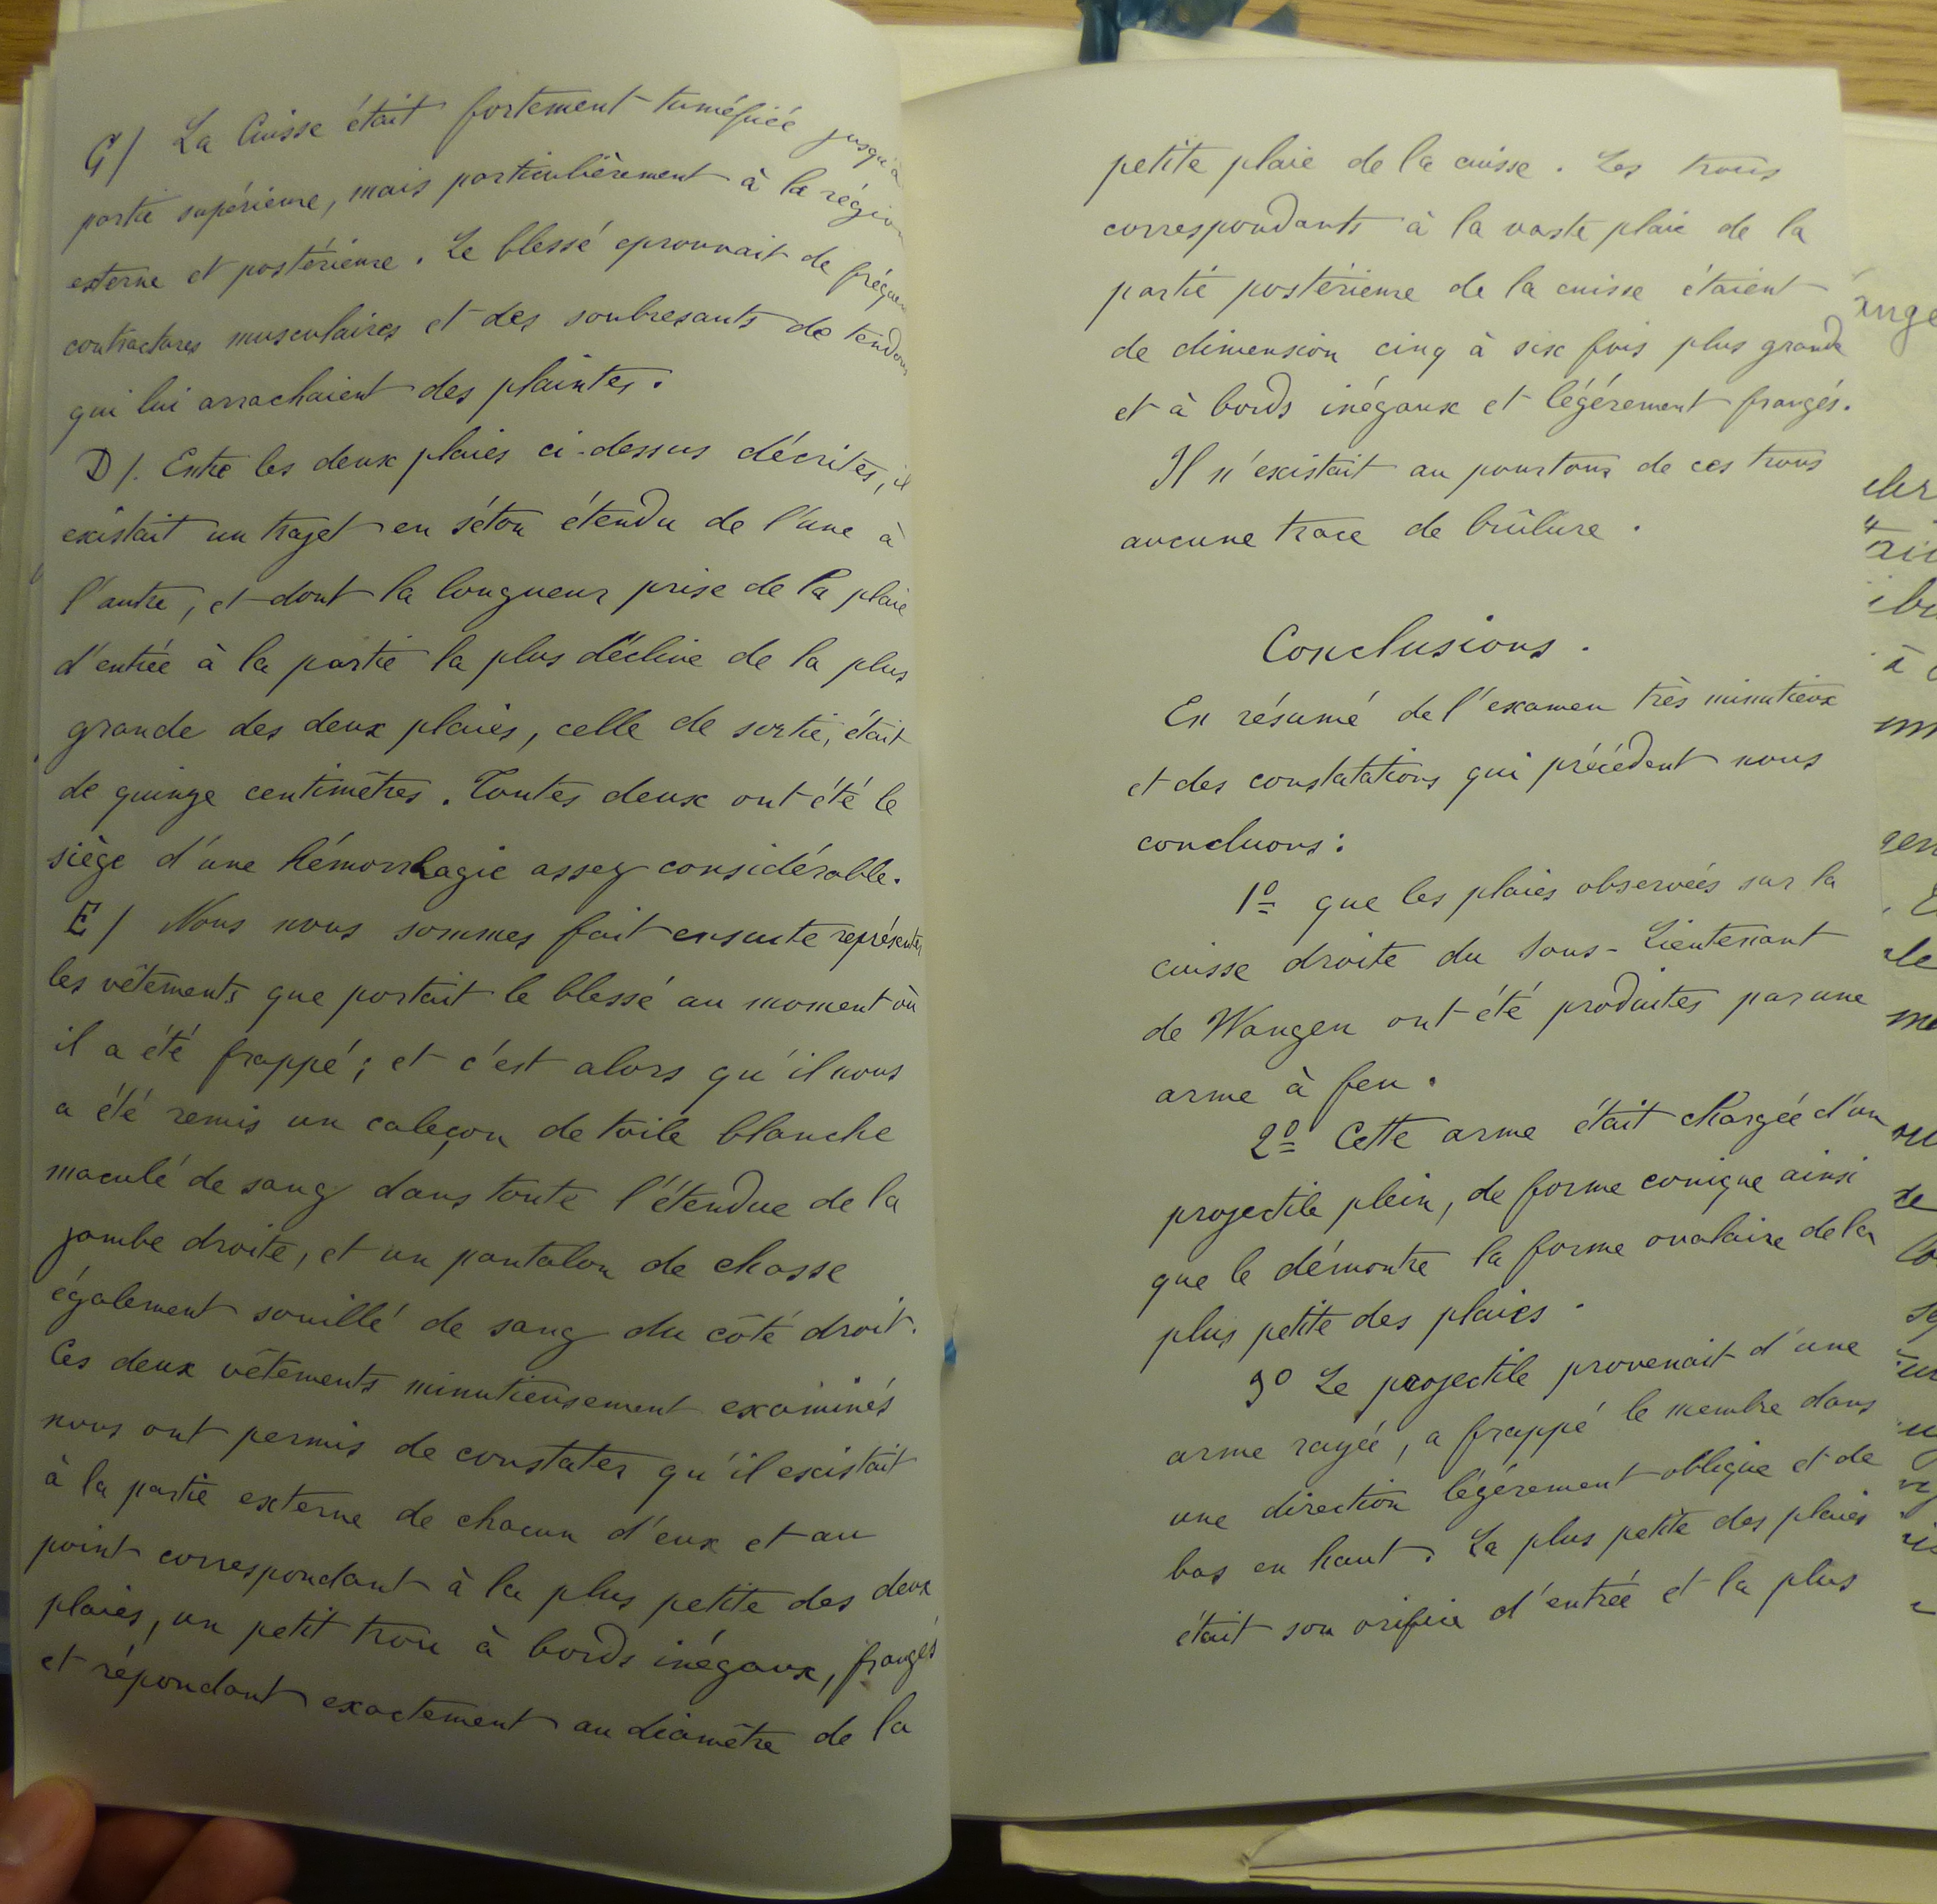 G/ La Cuisse était fortement tuméfiée jusqu'à
partie supérieure, mais particulièrement à la région
esterne et postérieure. Le blessé eprouvait de fréquen
contractures musculaires et des soubresauts de tendons
qui lui arrachaient des plaintes.
D/. Entre les deux plaies ci-dessus décrites, il
existait un trajet en séton étendu de l'une à
l'autre, et dont la longueur prise de la plaie
d'entrée à la partie la plus déclive de la plus
grande des deux plaies, celle de sortie, était
de quinze centimètres. Toutes deux ont été le
siège d'une hémorrhagie assez considérable.
E/ Nous nous sommes fait ensuite représenter
les vêtements que portait le blessé au moment où
il a été frappé; et c'est alors qu'il nous
a été remis un caleçon de toile blanche
maculé de sang dans toute l'étendue de la
jambe droite, et un pantalon de chasse
également souillé de sang du côté droit.
Ces deux vêtements minutieusement examinés
nous ont permis de constater qu'il existait
à la partie externe de chacun d'eux et au
point correspondant à la plus petite des deux
plaies, un petit trou à bords inégaux, frangés
et répondant exactement au diamètre de la
petite plaie de la cuisse. Les trous
correspondants à la vaste plaie de la
partie postérieure de la cuisse étaient
de dimension cinq à six fois plus grande
et à bords inégaux et légérement frangés.
Il n'existait au pourtour de ces trous
aucune trace de brûlure.
Conclusions.
En résumé de l'examen très minutieux
et des constatations qui précédent nous
concluons:
1º que les plaies observées sur la
cuisse droite du Sous-Lieutenant
de Wangen ont été produites par une
arme à feu.
2º Cette arme était chargée d'un
projectile plein, de forme conique ainsi
que le démontre la forme ovalaire de la
plus petite des plaies.
3º Le projectile provenait d'une
arme rayée, a frappé le membre dans
une direction légérement oblique et de
bas en haut. La plus petite des plaies
était son orifice d'entrée et la plus